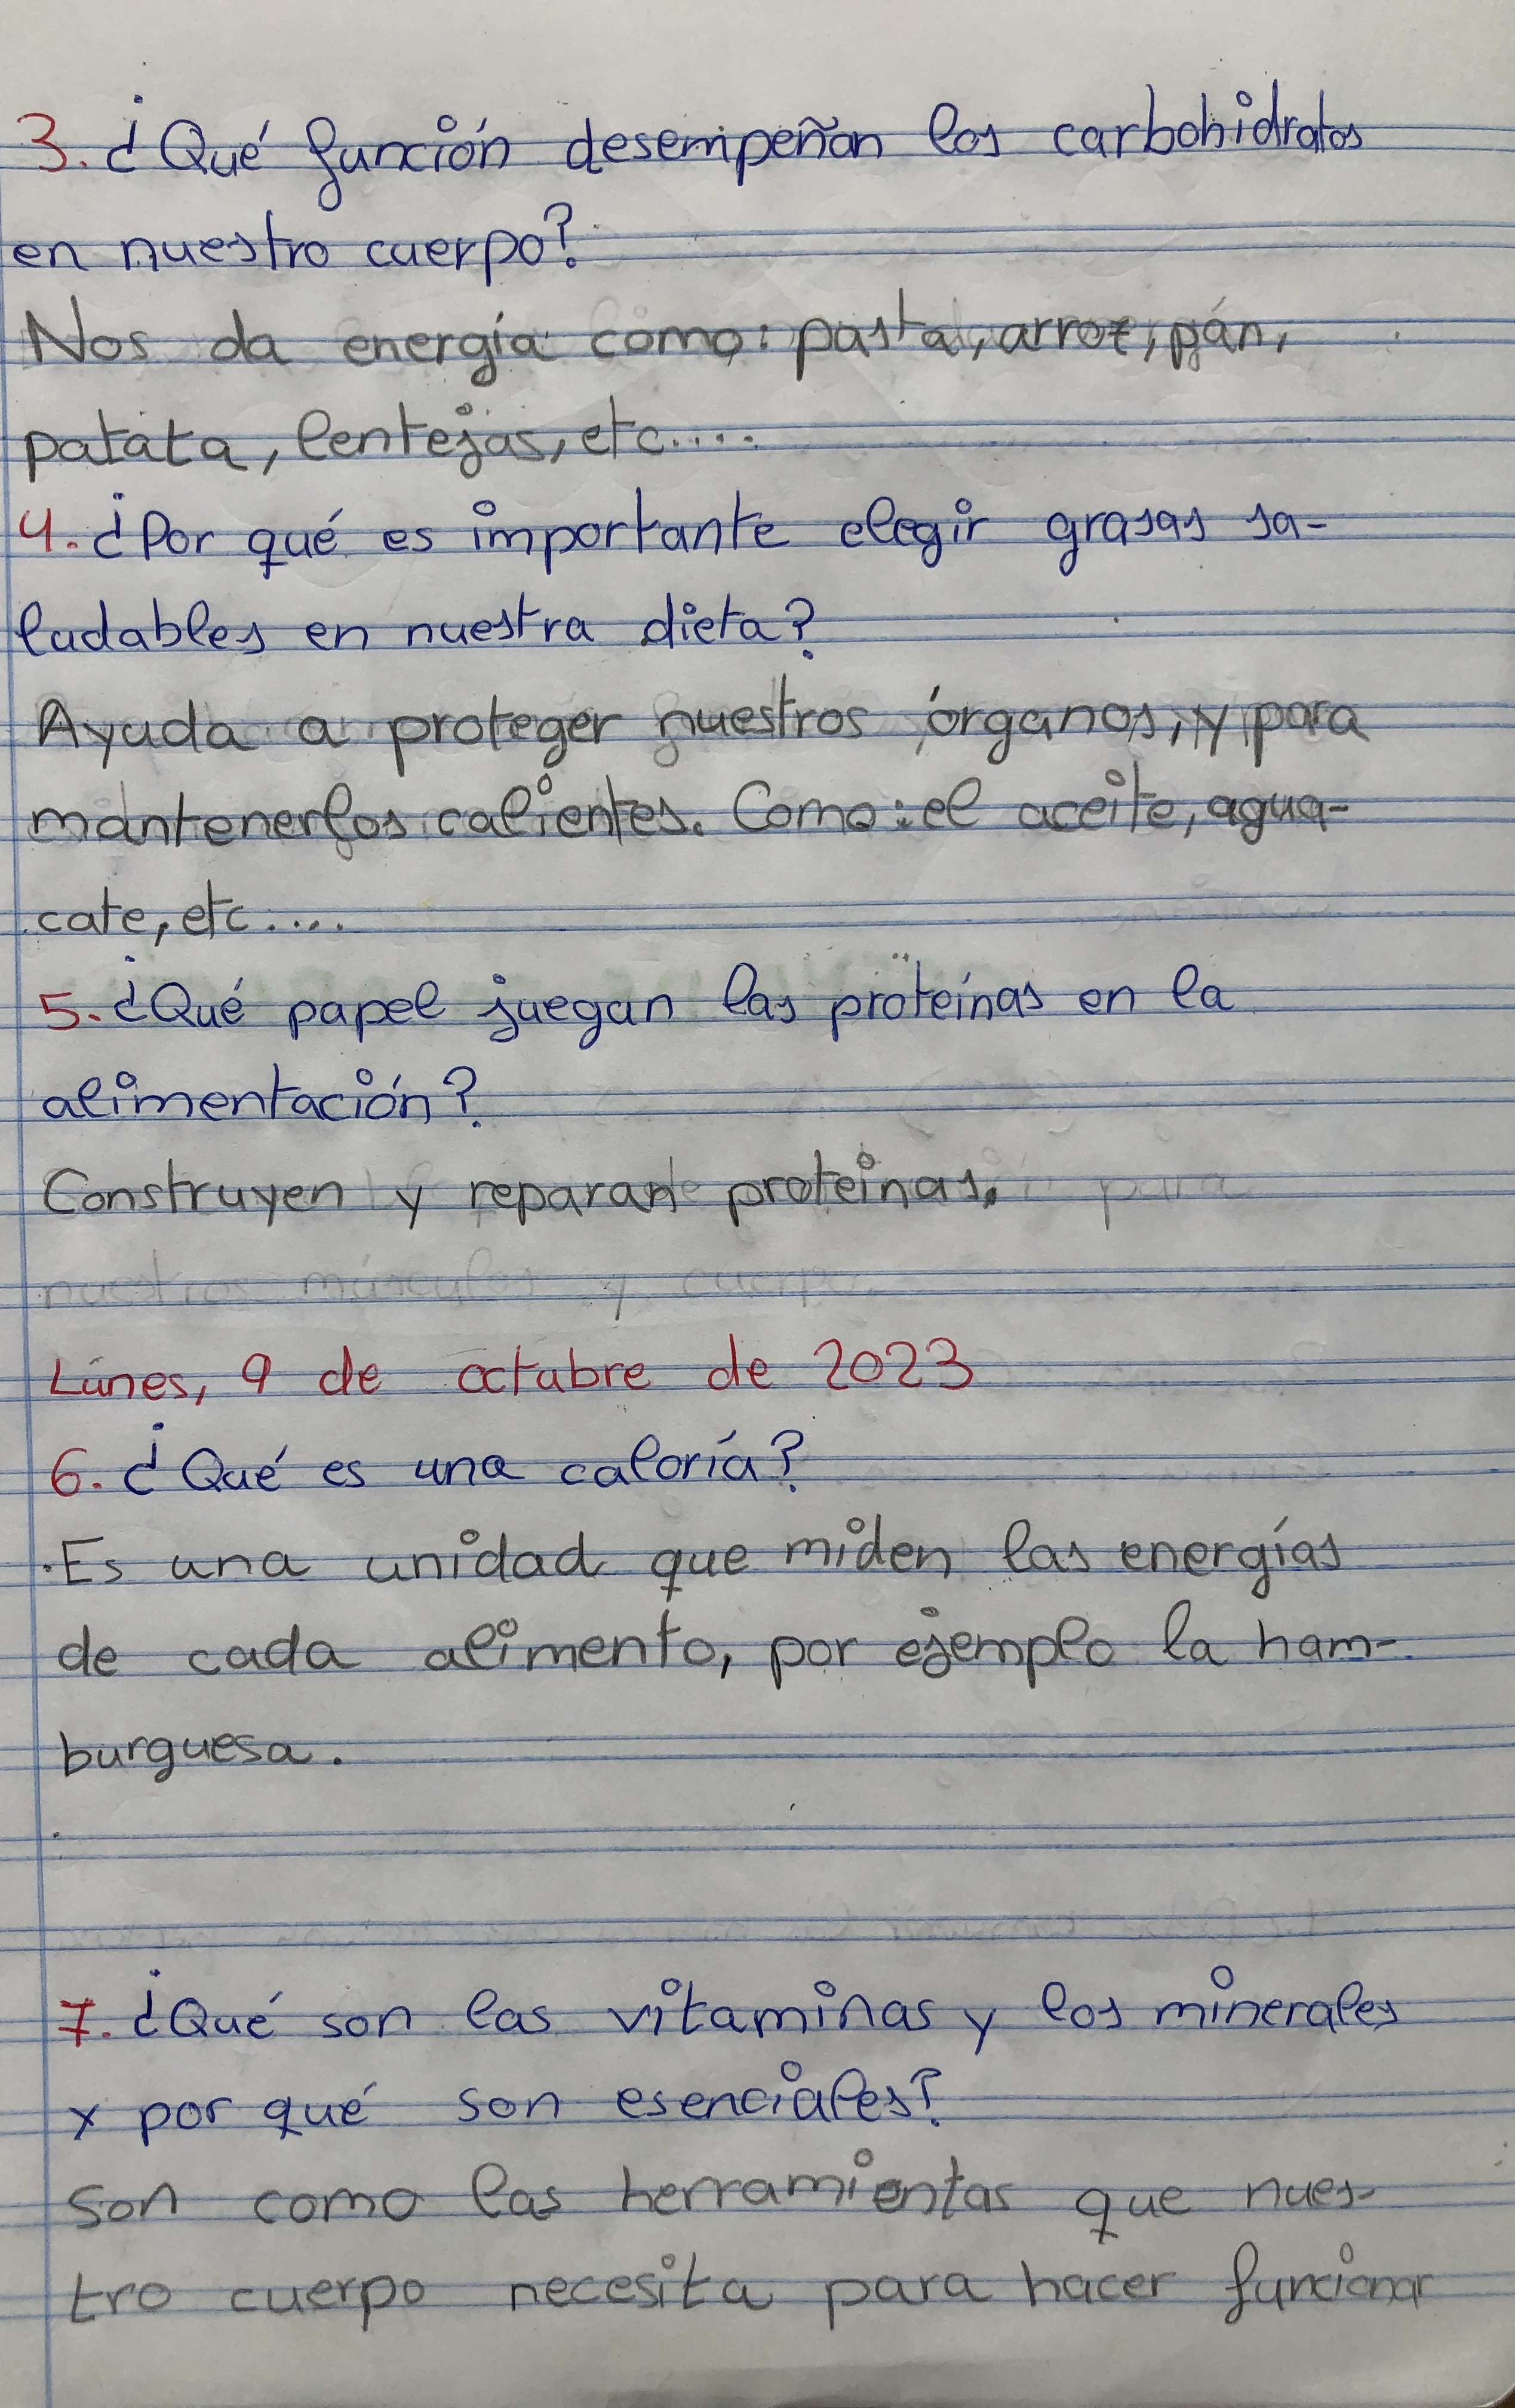 3. ¿Qué función desempeñan los carbohidratos
en nuestro cuerpo?
Nos da energía como: pasta, arroz, pán,
patata, lentejas, etc....
4. ¿Por qué es importante elegir grasas sa-
ludables en nuestra dieta?
Ayuda a proteger nuestros órganos, y para
mantenerlos calientes. Como: el aceite, agua-
cate, etc....
5. ¿Qué papel juegan las proteínas en la
alimentación?
Construyen y reparan proteinas. para
nuestros músculos y cuerpo.
Lunes, 9 de octubre de 2023
6. ¿Qué es una caloría?
Es una unidad que miden las energías
de cada alimento, por ejemplo la ham-
burguesa.
7. ¿Qué son las vitaminas y los minerales
y por qué son esenciales?
Son como las herramientas que nues-
tro cuerpo necesita para hacer funcionar